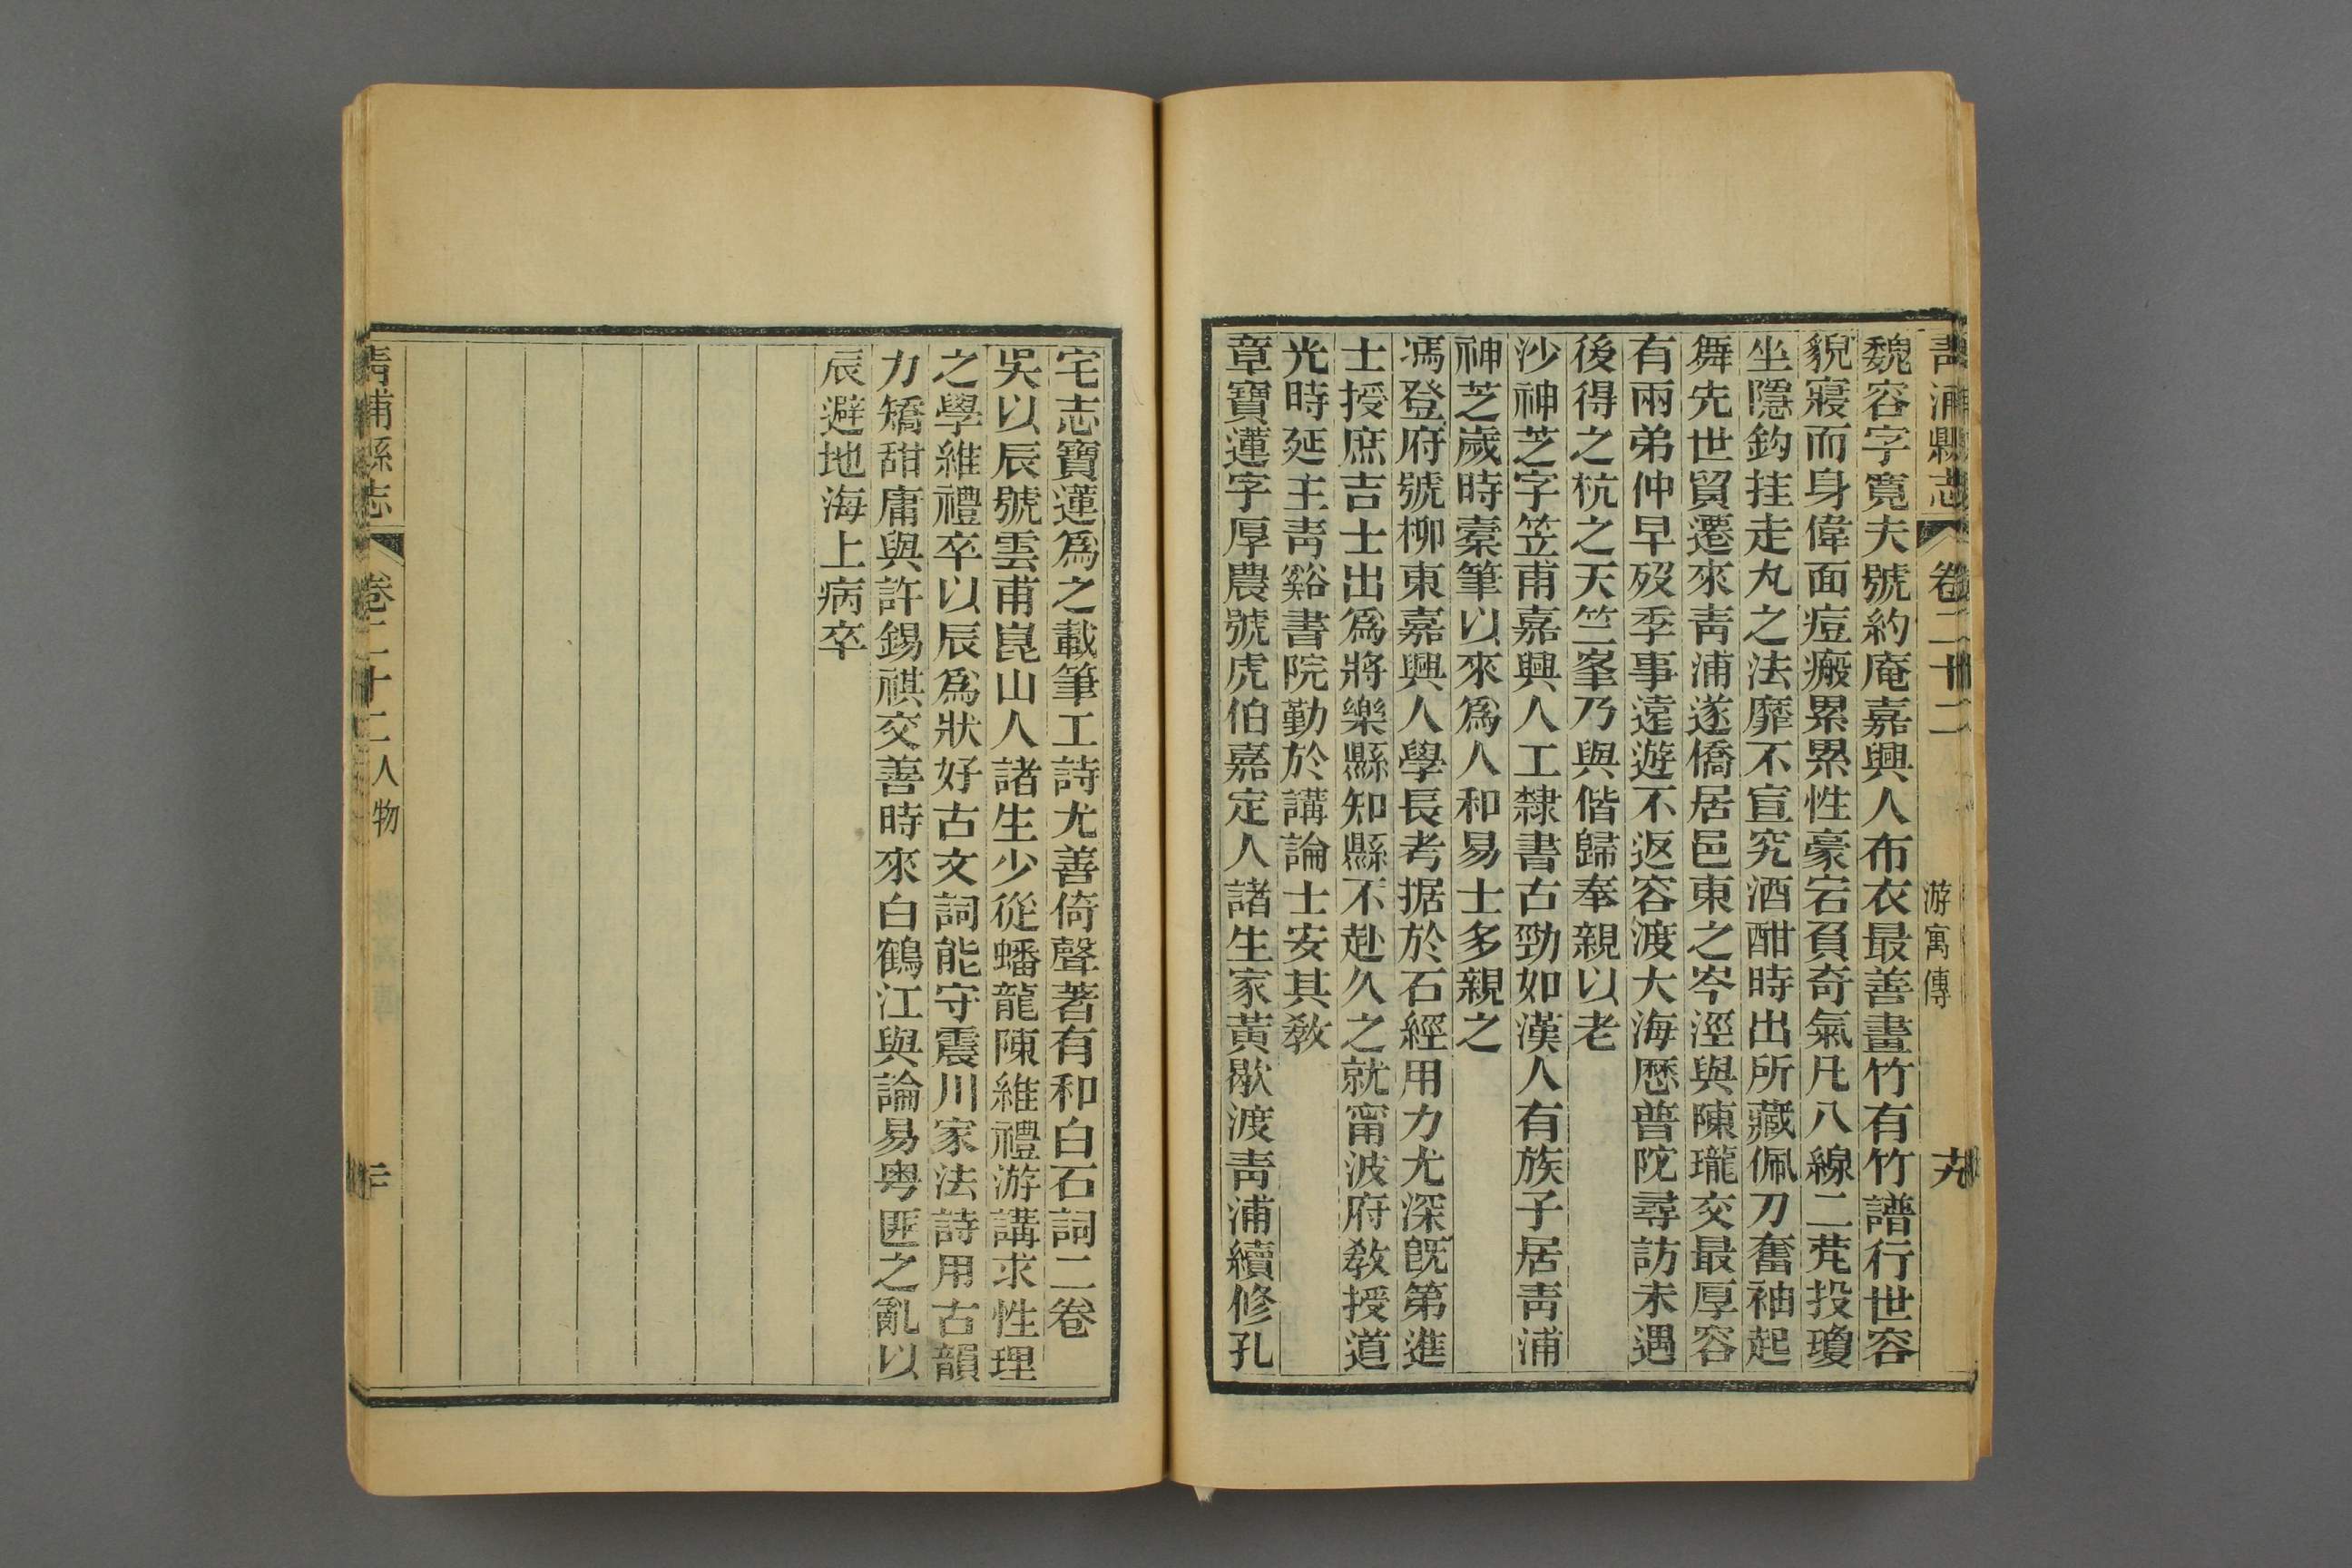 青浦縣志 卷二十二 游寓傳 十九
魏容字寬夫號約庵嘉興人布衣最善畫竹有竹譜行世容
貌寢而身偉面痘瘢累累性豪宕負奇氣凡八線二茺投瓊
坐隱鈎挂走丸之法靡不宣究酒酣時出所藏佩刀奮袖起
舞先世貿遷來靑浦遂僑居邑東之岑涇與陳瓏交最厚容
有兩弟仲早歿季事遠遊不返容渡大海歷普陀尋訪未遇
後得之杭之天竺峯乃與偕歸奉親以老
沙神芝字笠甫嘉興人工隸書古勁如漢人有族子居靑浦
神芝歲時橐筆以來爲人和易士多親之
馮登府號柳東嘉興人學長考据於石經用力尤深旣第進
士授庶吉士出爲將樂縣知縣不赴久之就甯波府敎授道
光時延主靑谿書院勤於講論士安其敎
章寶蓮字厚農號虎伯嘉定人諸生家黃歇渡靑浦續修孔
宅志寶蓮爲之載筆工詩尤善倚聲著有和白石詞二卷
吳以辰號雲甫崑山人諸生少從蟠龍陳維禮游講求性理
之學維禮卒以辰爲狀好古文詞能守震川家法詩用古韻
力矯甜庸與許錫祺交善時來白鶴江與論易粤匪之亂以
辰避地海上病卒
靑浦縣志 卷二十二 人物 二十